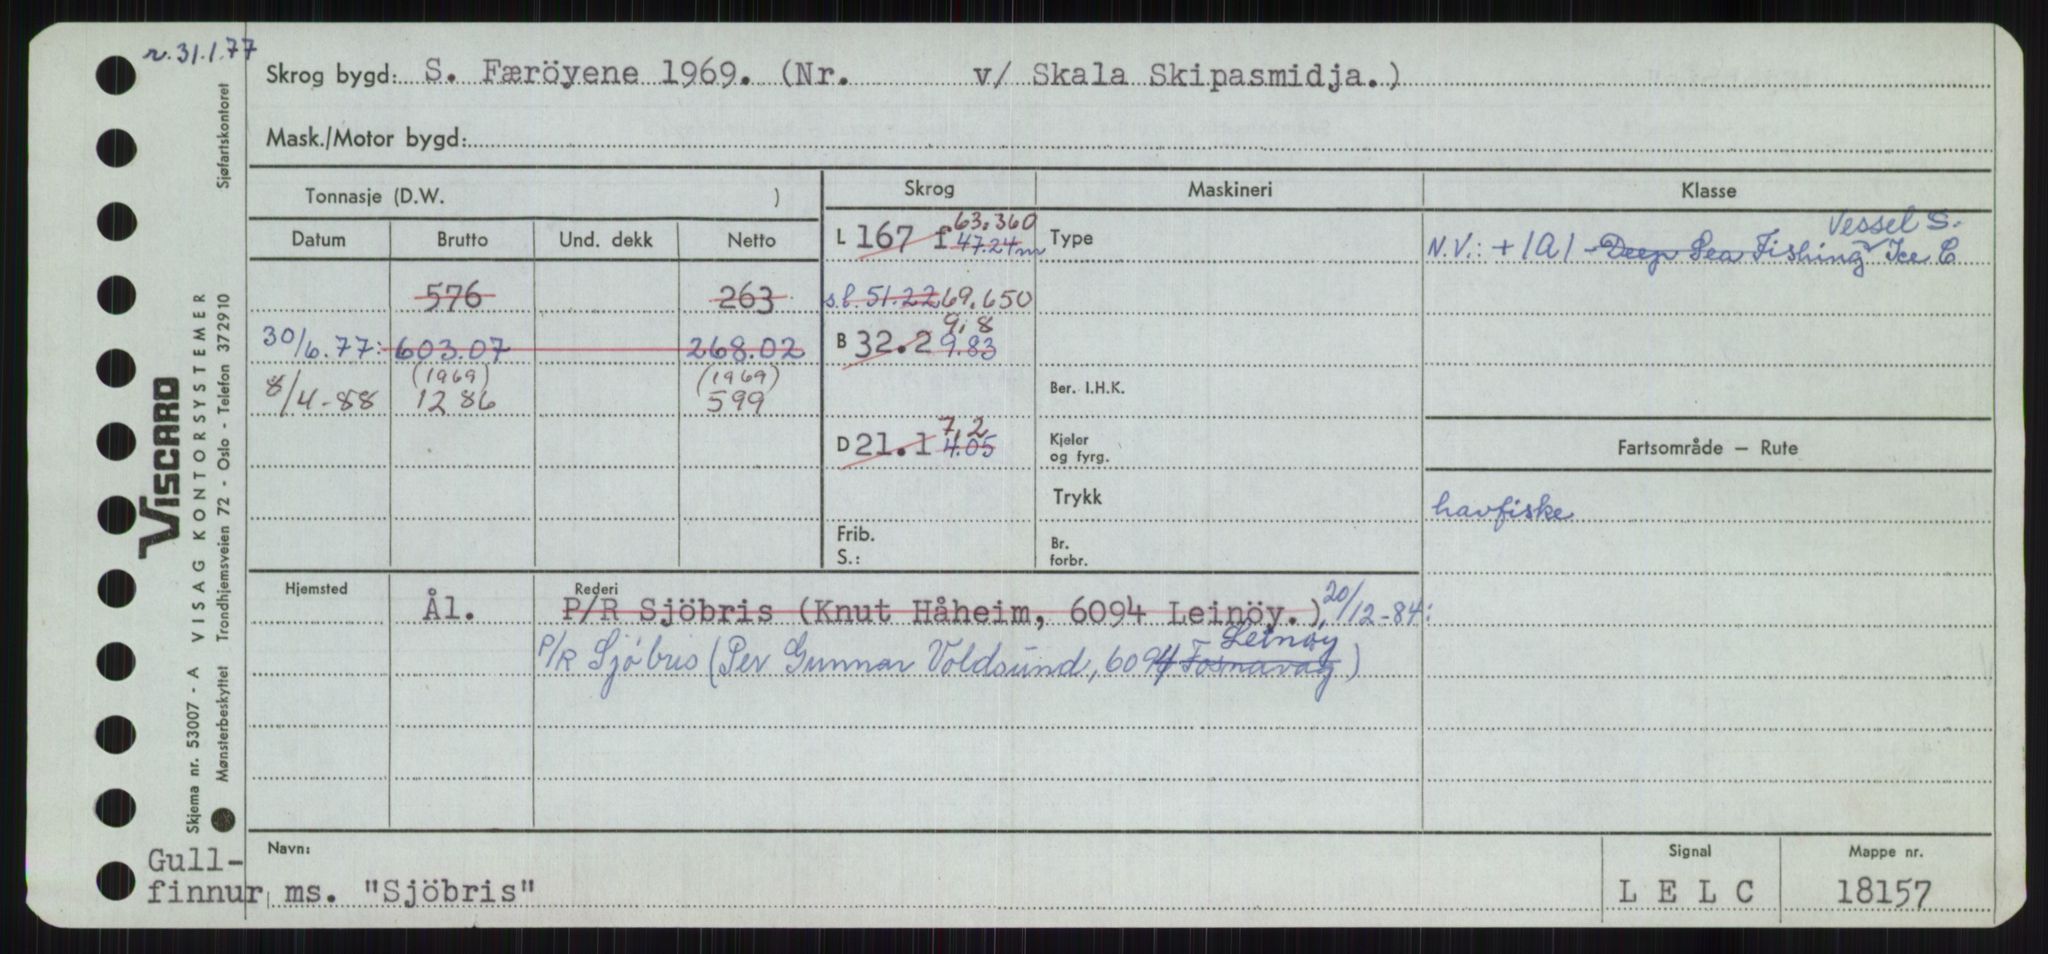 r. 31.1.77
Skrog bygd: S. Færöyene 1969. (Nr. v/ Skala Skipasmidja.)
Mask./Motor bygd:
Tonnasje (D.W. )
Skrog
Maskineri
Klasse
Datum
Brutto
Und. dekk
Netto
576
263
30/6.77: 603.07 268.02
8/4-88
(1969)
1286
(1969)
599
63.360
L 167 f 47.24 m
s.l. 51.22 69.650
9,8
B 32.2 9.83
7,2
D 21.1 4.05
Frib.
S.:
Type
Ber. I.H.K.
Kjeler
og fyrg.
Trykk
Br.
forbr.
Vessel S.
N.V.: +1A1 - Deep Sea Fishing Ice C
Fartsområde — Rute
havfiske
Hjemsted
Rederi
Ål. P/R Sjöbris (Knut Håheim, 6094 Leinöy.) 20/12-84:
Leinøy
P/R Sjöbris (Per Gunnar Voldsund, 6094 Fosnavåg)
Navn:
Gull-
finnur ms. "Sjöbris"
Signal
L E L C
Mappe nr.
18157
VISCARD
Skjema nr. 53007 - A VISAG KONTORSYSTEMER
Mønsterbeskyttet Trondhjemsveien 72 - Oslo - Telefon 372910 Sjøfartskontoret